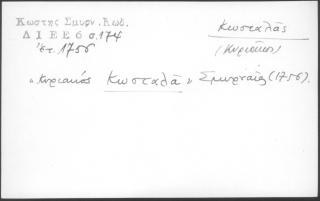 Κωστης Σμυρν. Κωδ.
Δ Ι Ε Ε 6 σ. 174
Ετ. 1756
Κωσταλᾶς
(Κυριάκος)
"Κυριακός Κωσταλᾶ" Σμυρναῖος (1756).